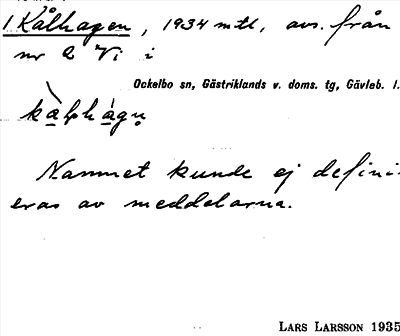 1 Kålhagen, 1934 mtl, avs. från
nr 2 Vi i
Ockelbo sn, Gästriklands v. doms. tg, Gävleb. l.
Namnet kunde ej defini-
eras av meddelarna.
LARS LARSSON 1935